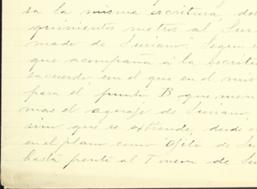 en la misma escritura, des
quinientos metros al Sur
mado de Luciano. Segun e
que acompaña á la escritu
acuerdo, en el que en el mis
para el punto B que men
mas el agoraje de Luciano,
sino que se estiende, desde
en el plano como Ojito de Lu
hasta frente al T nueva de Lu